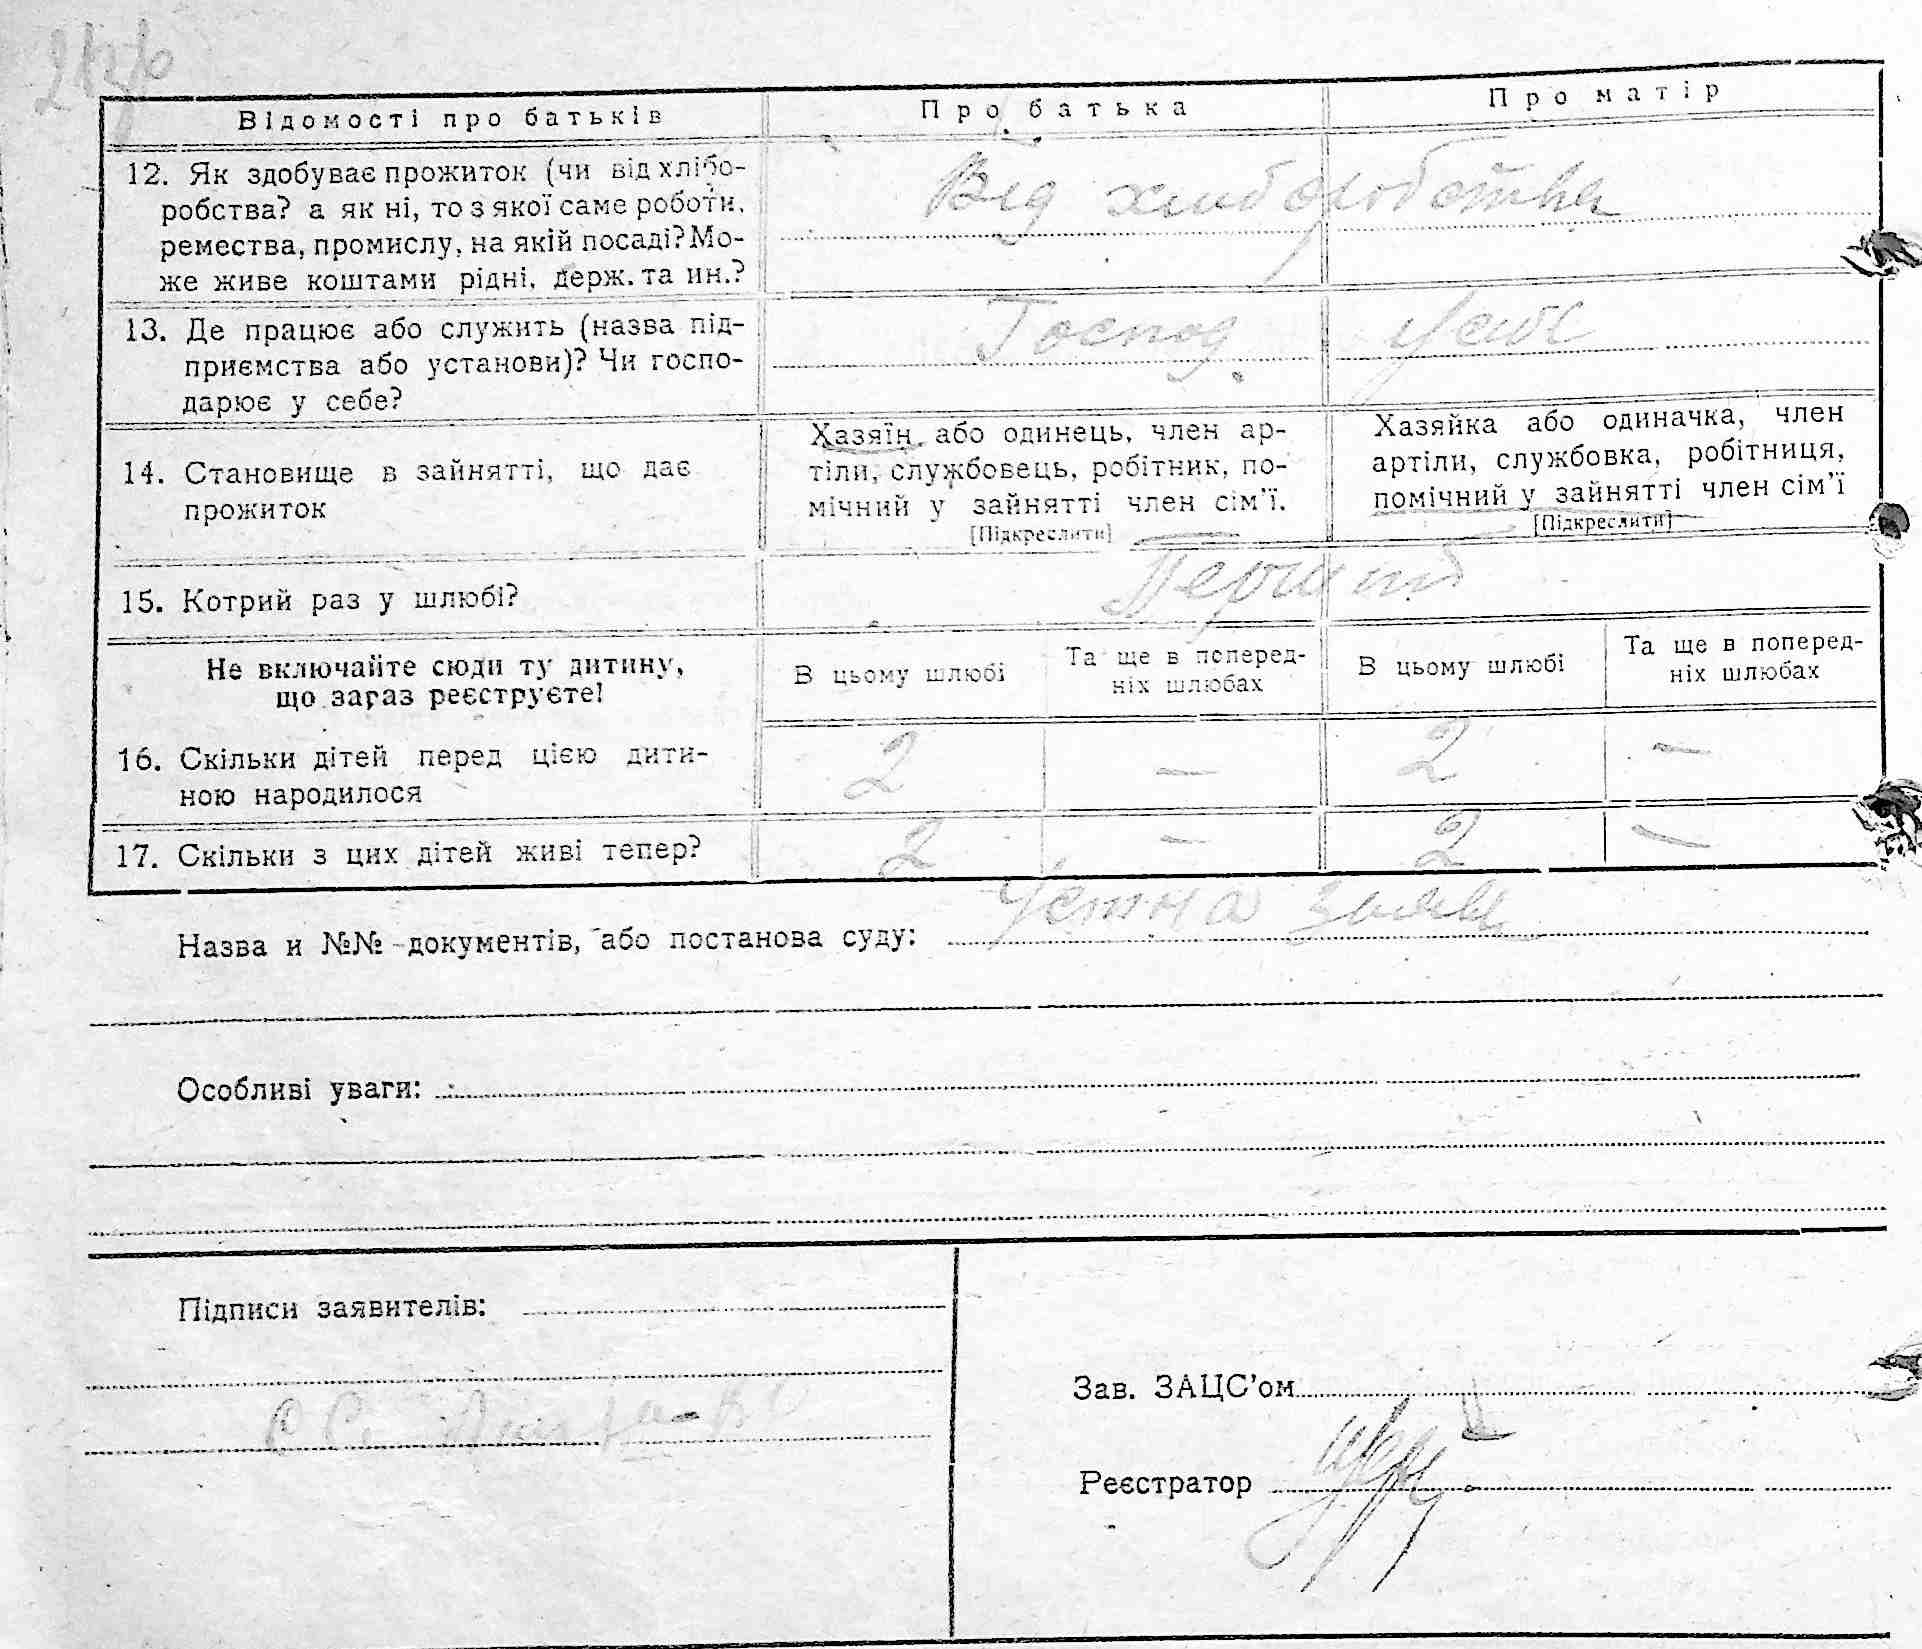 Відомості про батьків
Про батька
Про матір
12. Як здобуває прожиток (чи від хлібо-
робства? а як ні, то з якої саме роботи,
ремества, промислу, на якій посаді? Мо-
же живе коштами рідні, держ. та ин.?
Від хлиборобства
13. Де працює або служить (назва під-
приємства або установи)? Чи госпо-
дарює у себе?
Господ. у себе
14. Становище в зайнятті, що дає
прожиток
Хазяїн, або одинець, член ар-
тіли, службовець, робітник, по-
мічний у зайнятті член сім'ї.
[Підкреслити]
Хазяйка або одиначка, член
артіли, службовка, робітниця,
помічний у зайнятті член сім'ї
[Підкреслити]
15. Котрий раз у шлюбі?
Перший
Не включайте сюди ту дитину,
що зараз реєструєте!
В цьому шлюбі
Та ще в поперед-
ніх шлюбах
В цьому шлюбі
Та ще в поперед-
ніх шлюбах
16. Скільки дітей перед цією дити-
ною народилося
2 — 2 —
17. Скільки з цих дітей живі тепер?
2 — 2 —
Назва и №№ документів, або постанова суду: Устна заява
Особливі уваги:
Підписи заявителів:
Зав. ЗАЦС'ом
Реєстратор